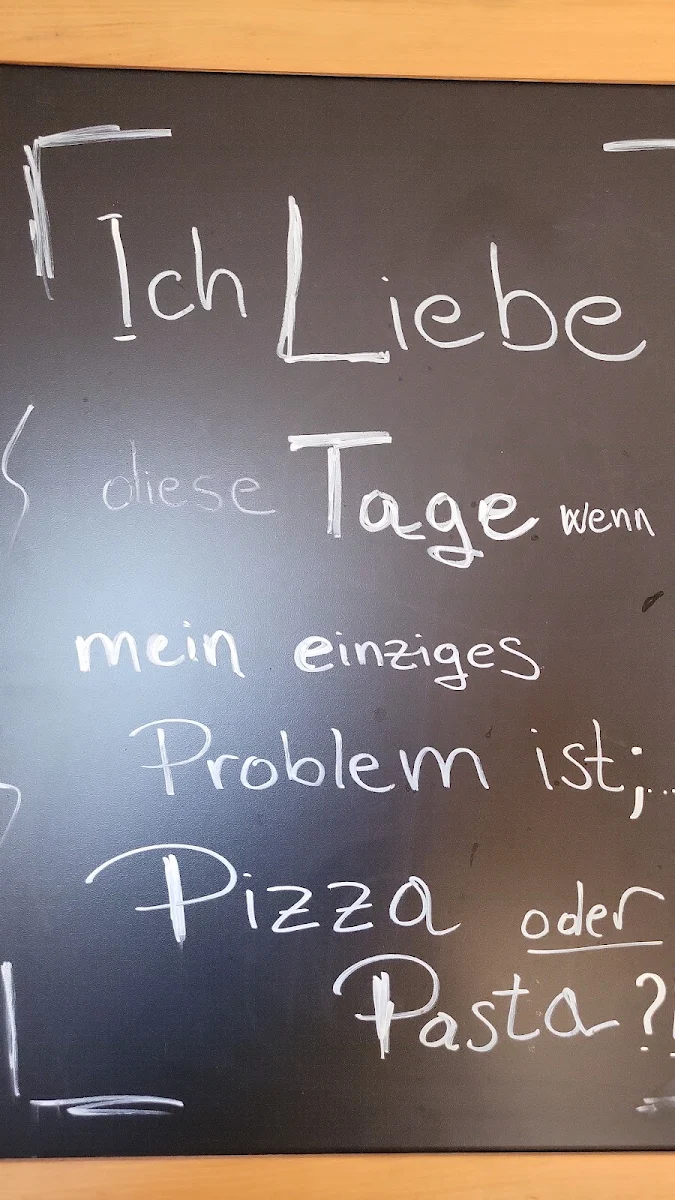 Ich Liebe
diese Tage wenn
mein einziges
Problem ist;...
Pizza oder
Pasta?!